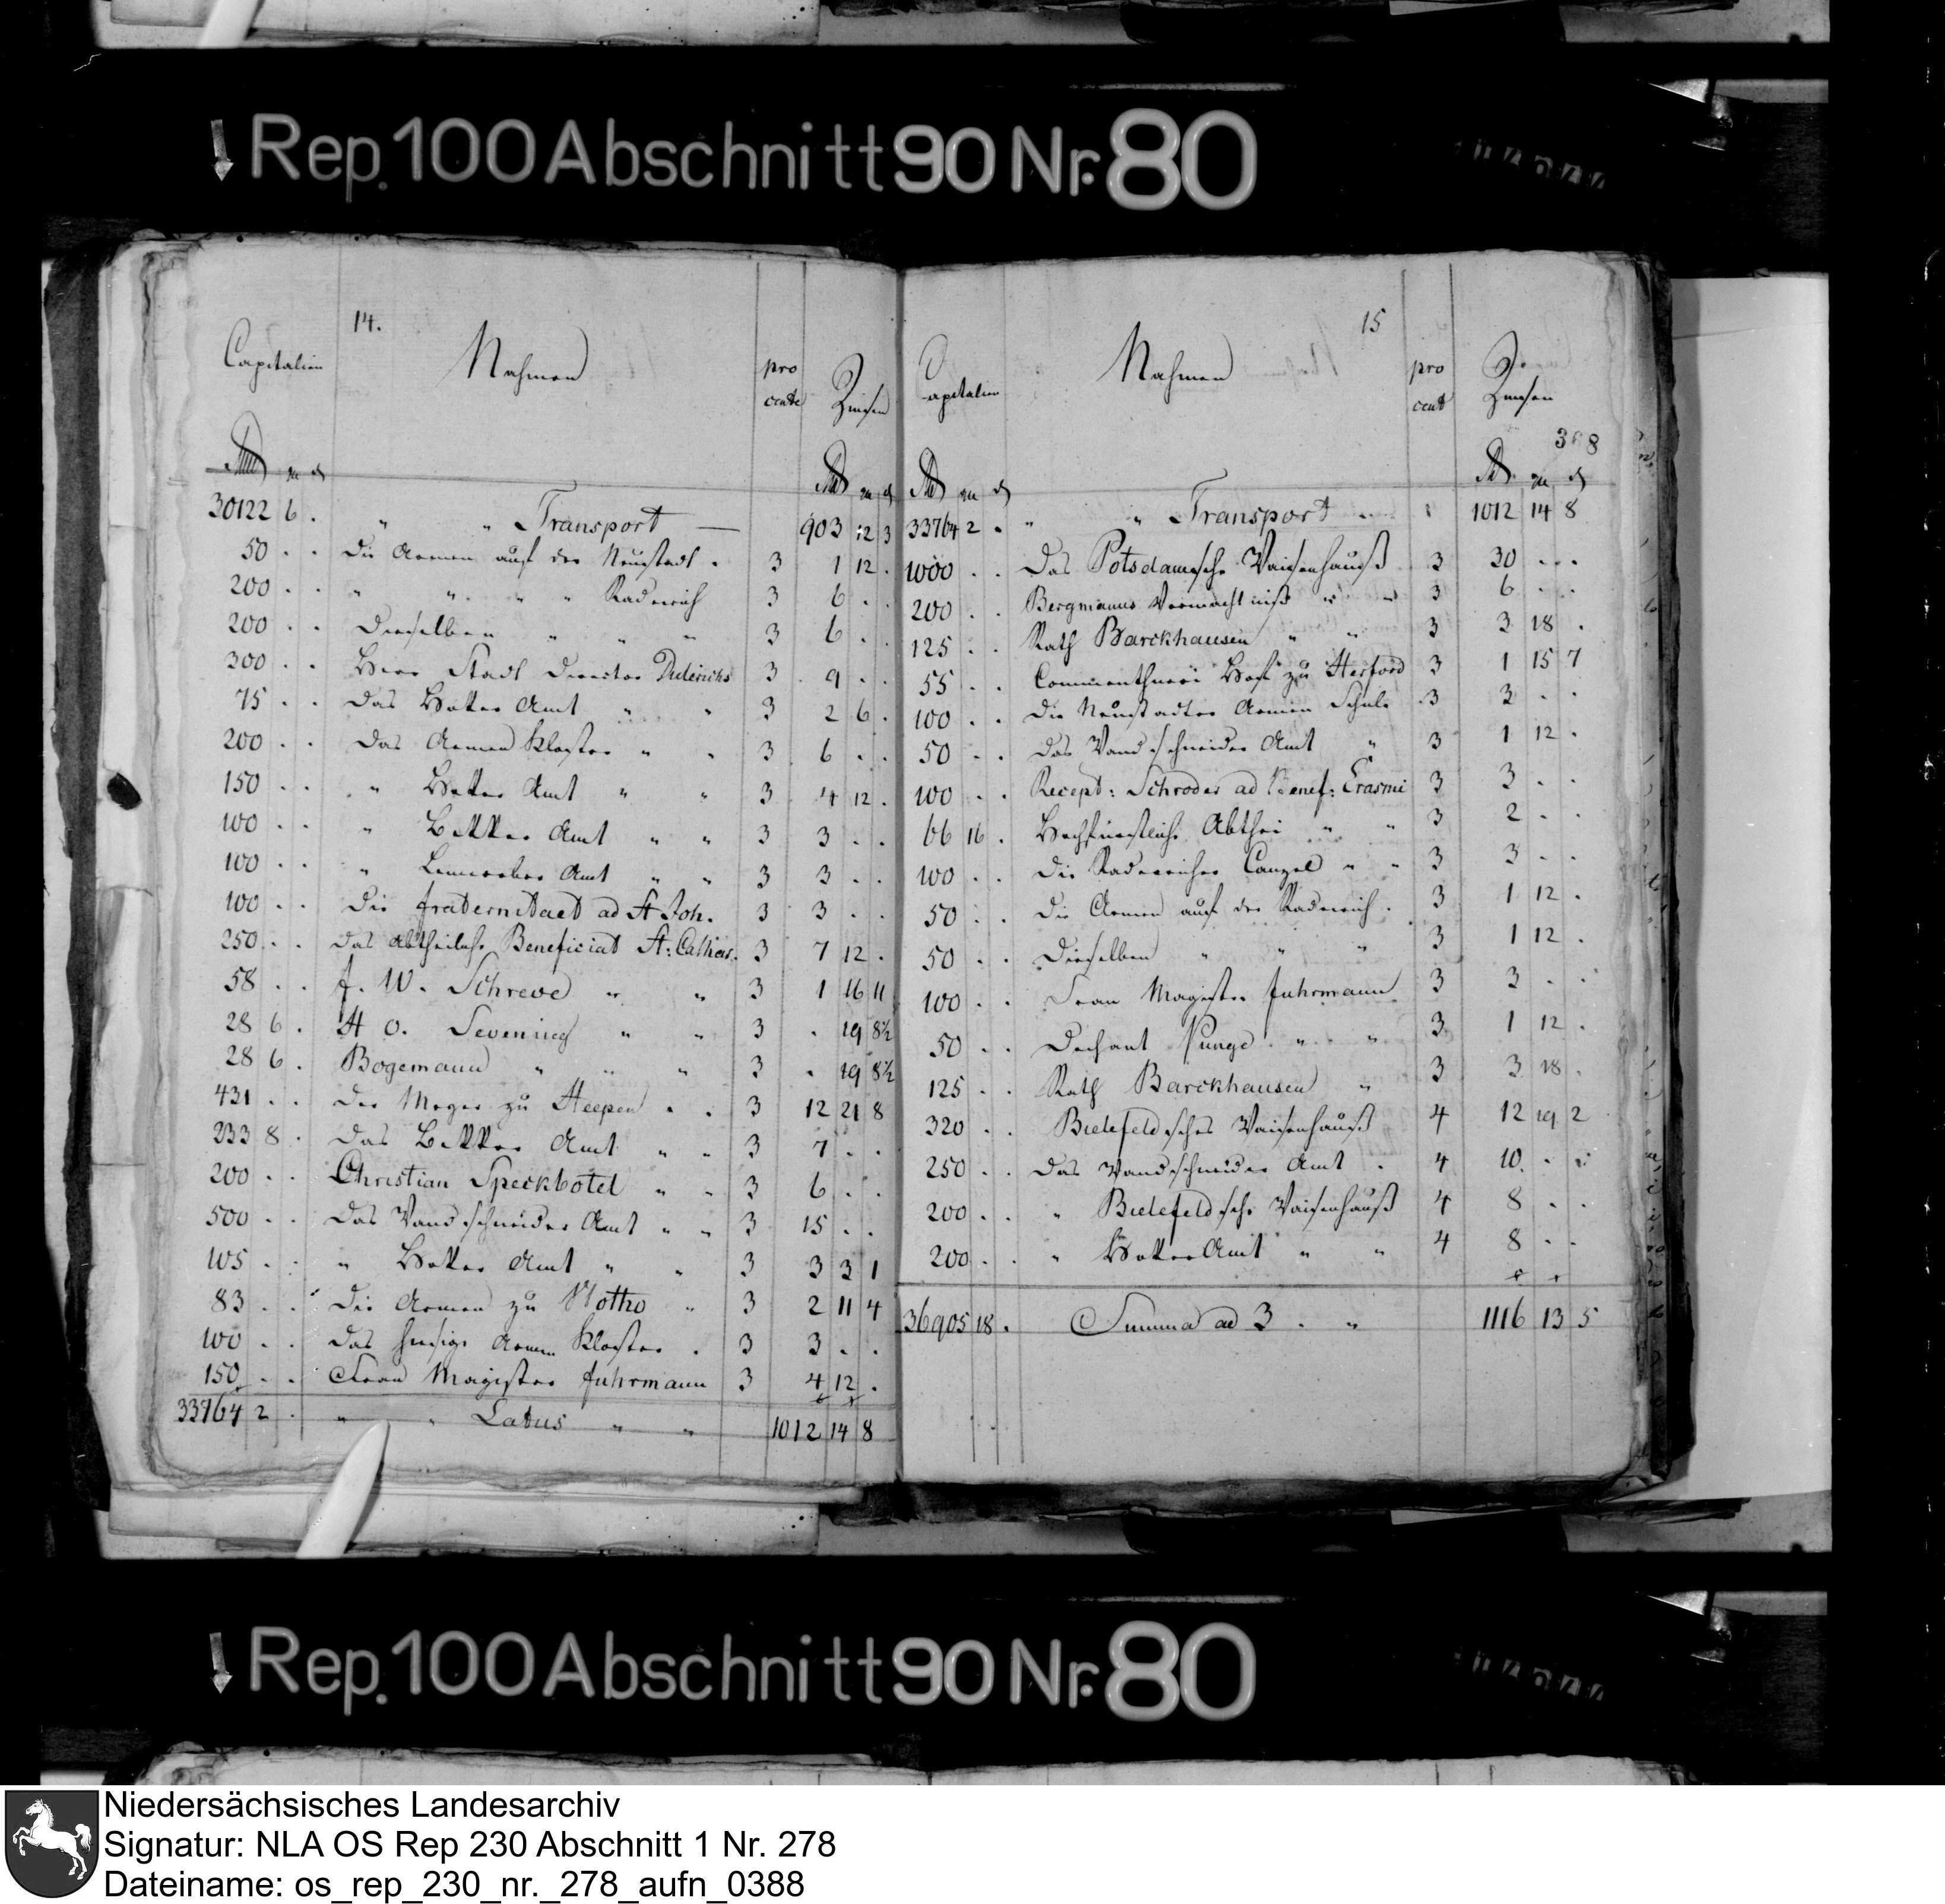 Rep. 100 Abschnitt 90 Nr. 80
14.
Capitalien Nahmen pro cente Zinsen
30122 6 . " " Transport — 903 12 3
50 . . Die Armen auf der Neustadt . 3 1 12 .
200 . . " " " " Radewich 3 6 . .
200 . . Dieselben " " " 3 6 . .
300 . . Herr Stadt Director Diderichs 3 9 . .
75 . . Das Höker Amt " " 3 2 6 .
200 . . Das Armen Kloster " . 3 6 . .
150 . . " Höker Amt " " 3 4 12 .
100 . . " Bekker Amt " " 3 3 . .
100 . . " Amt " " 3 3 . .
100 . . Die fraternitaet ad St Joh. 3 3 . .
250 . . Das Beneficiat St: Cathar. 3 7 12 .
58 . . f. W. Schreve " " 3 1 16 11
28 6 . H O. Sevening " " 3 . 19 8½
28 6 . Bogemann " " " 3 . 19 8½
431 . . Der Meyer zu Heepen . . 3 12 21 8
233 8 . Das Bekker Amt " " 3 7 . .
200 . . Christian Speckbotel " " 3 6 . .
500 . . Das Wandschneider Amt " " 3 15 . .
105 . . " Höker Amt " " 3 3 3 1
83 . . Die Armen zu Vlotho " 3 2 11 4
100 . . Das hiesige Armen Kloster . 3 3 . .
150 . . Frau Magister fuhrmann 3 4 12 .
33764 2 . " " Latus " " 1012 14 8
15
Capitalien Nahmen pro cent Zinsen
368
33764 2 . " " Transport .. " 1012 14 8
1000 . . Das Potsdamsche Waisenhauß 3 30 . .
200 . . Bergmanns Vermachtniß " " 3 6 . .
125 . . Rath Barckhausen " " 3 3 18 .
55 . . Commenthurei Hof zu Herford 3 1 15 7
100 . . Die Neustadter Armen Schule 3 3 . .
50 . . Das Wandschneider Amt " 3 1 12 .
100 . . Recept: Schroder ad Benef: Erasmi 3 3 . .
66 16 . Hochfürstliche Abthei " " 3 2 . .
100 . . Die Radewicher Canzel " " 3 3 . .
50 . . Die Armen auf der Radewich . 3 1 12 .
50 . . Dieselben " " " 3 1 12 .
100 . . Frau Magister fuhrmann 3 3 . .
50 . . Dechant Runge " " 3 1 12 .
125 . . Rath Barckhausen " 3 3 18 .
320 . . Bielefeldsches Waisenhauß 4 12 19 2
250 . . Das Wandschneider Amt . 4 10 . .
200 . . " Bielefeldsche Waisenhauß 4 8 . .
200 . . " Höker Amt " " 4 8 . .
36905 18 . Summa ad 3 . " 1116 13 5
Rep. 100 Abschnitt 90 Nr. 80
Niedersächsisches Landesarchiv
Signatur: NLA OS Rep 230 Abschnitt 1 Nr. 278
Dateiname: os_rep_230_nr._278_aufn_0388